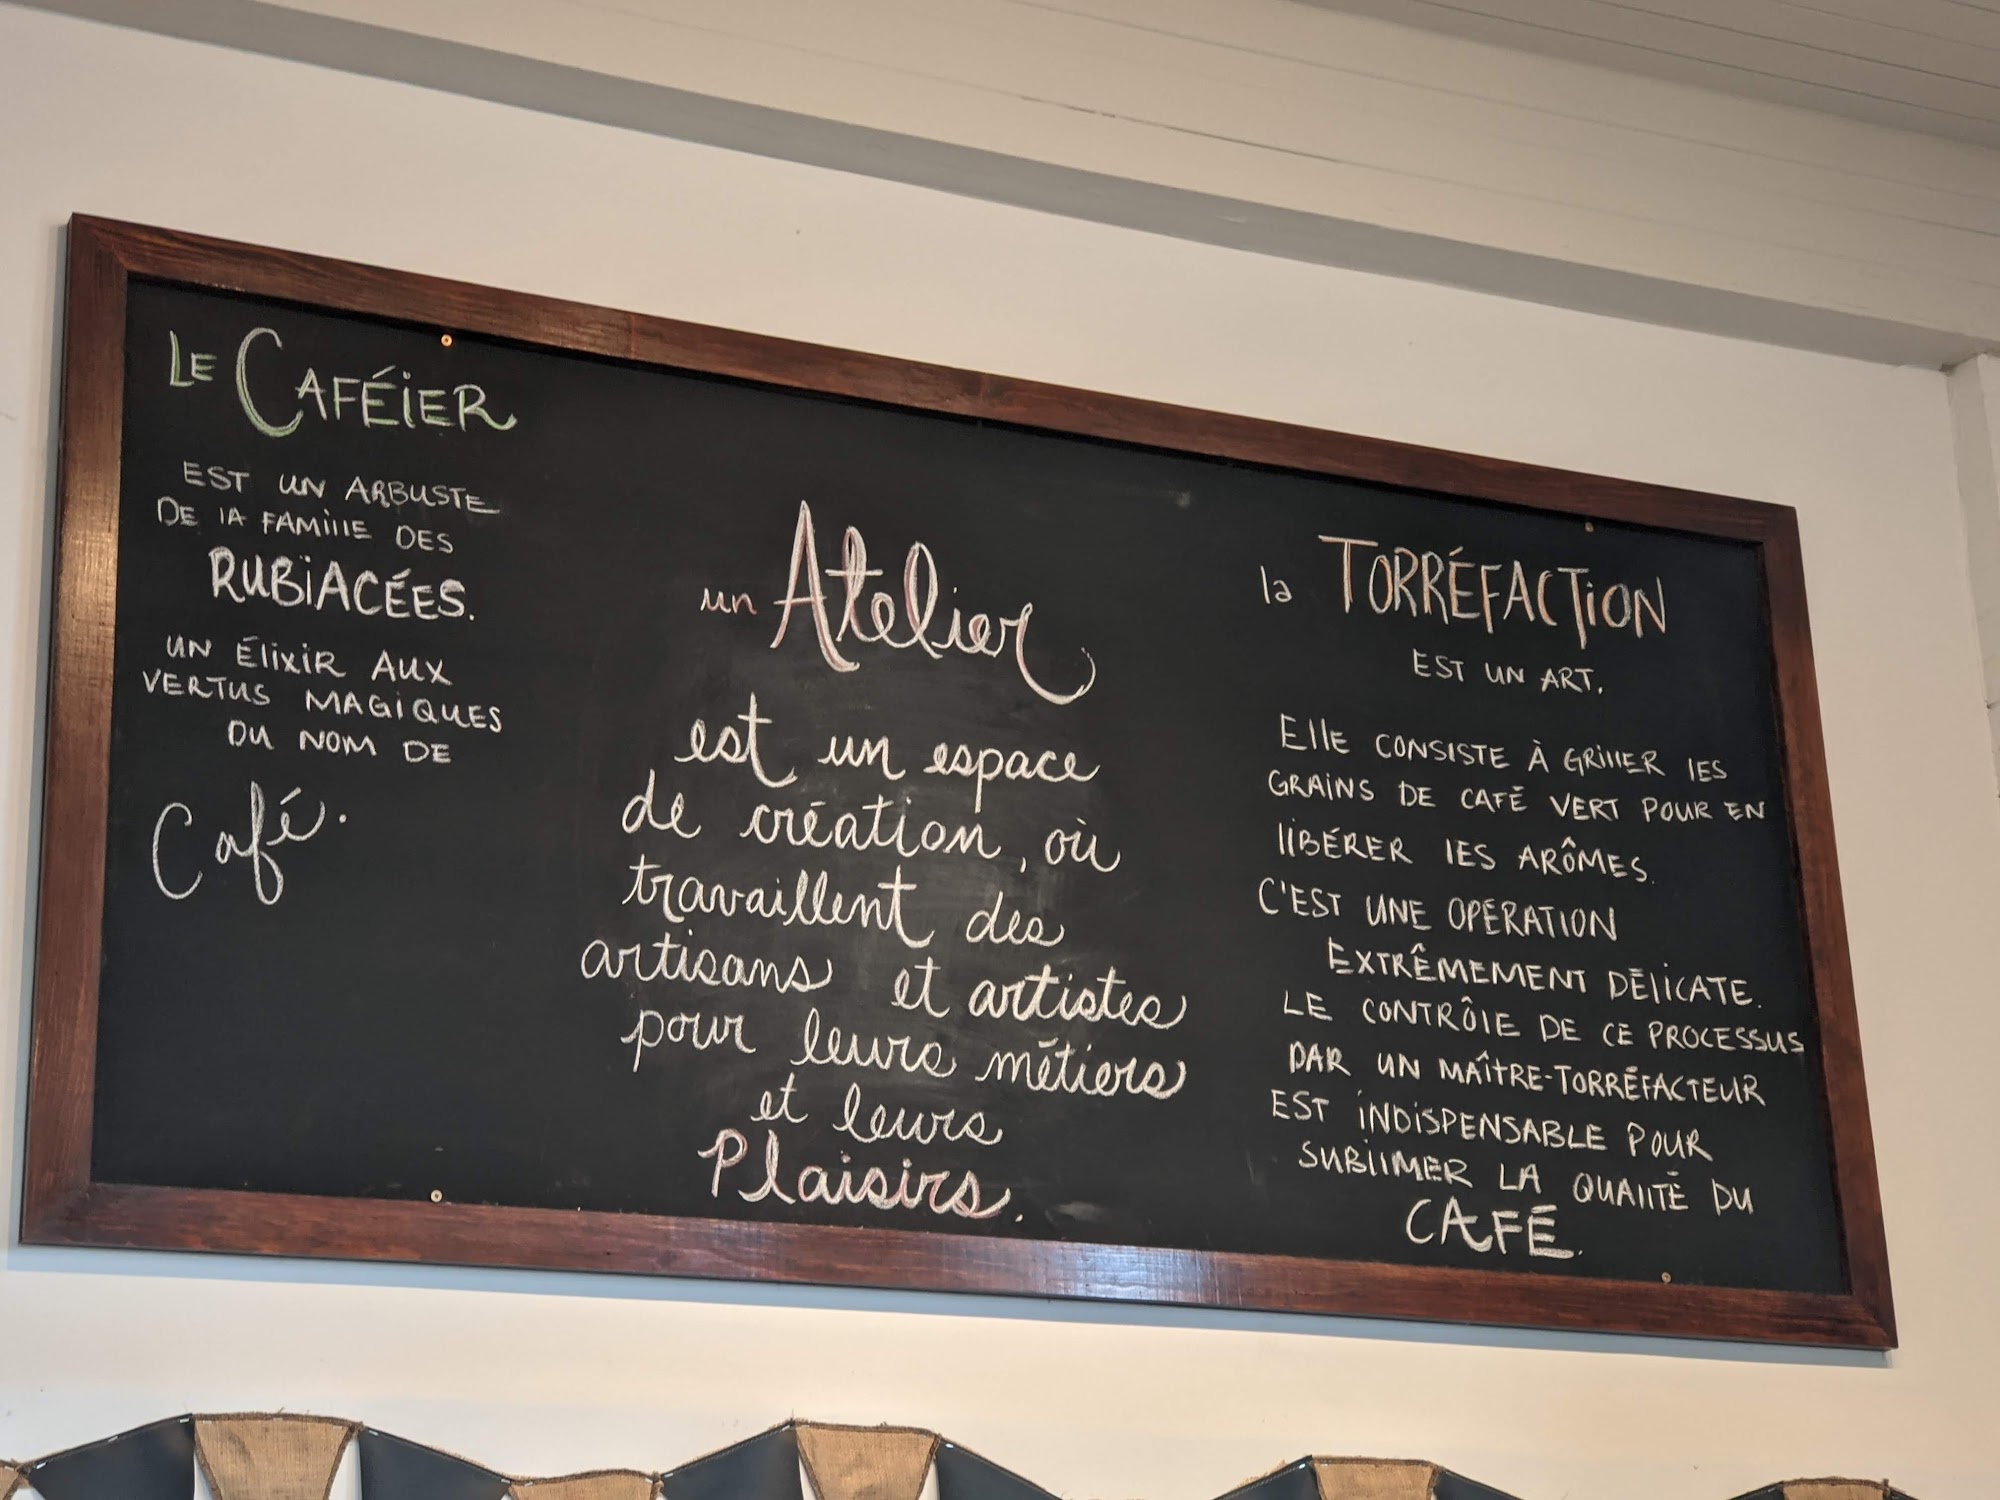 LE CAFÉIER
EST UN ARBUSTE
DE lA FAMIllE DES
RUBIACÉES.
UN ÉlixiR AUX
VERTUS MAGIQUES
DU NOM DE
Café.
un Atelier
est un espace
de création, où
travaillent des
artisans et artistes
pour leurs métiers
et leurs
Plaisirs.
la TORRÉFACTION
EST UN ART.
EllE CONSISTE À GRIllER lES
GRAINS DE CAFÉ VERT POUR EN
lIBÉRER lES ARÔMES.
C'EST UNE OPÉRATION
EXTRÊMEMENT DÉlICATE.
LE CONTRÔlE DE CE PROCESSUS
PAR UN MAÎTRE-TORRÉFACTEUR
EST INDISPENSABLE POUR
SUBlIMER LA QUAlITÉ DU
CAFÉ.